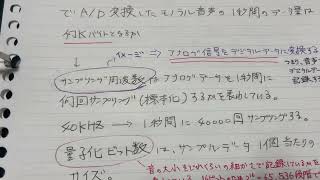 でA/D変換したモノラル音声の1秒間のデータ量は
何Kバイトとなるか
アナログ信号をデジタルデータに変換する
サンプリング周波数はアナログデータを1秒間に
何回サンプリング(標本化)するかを表わしている。
40KHz → 1秒間に40000回サンプリングする。
量子化ビット数は、サンプルデータ1個当たりの
サイズ。
音の大小をどれくらいの細かさで記録しているかを